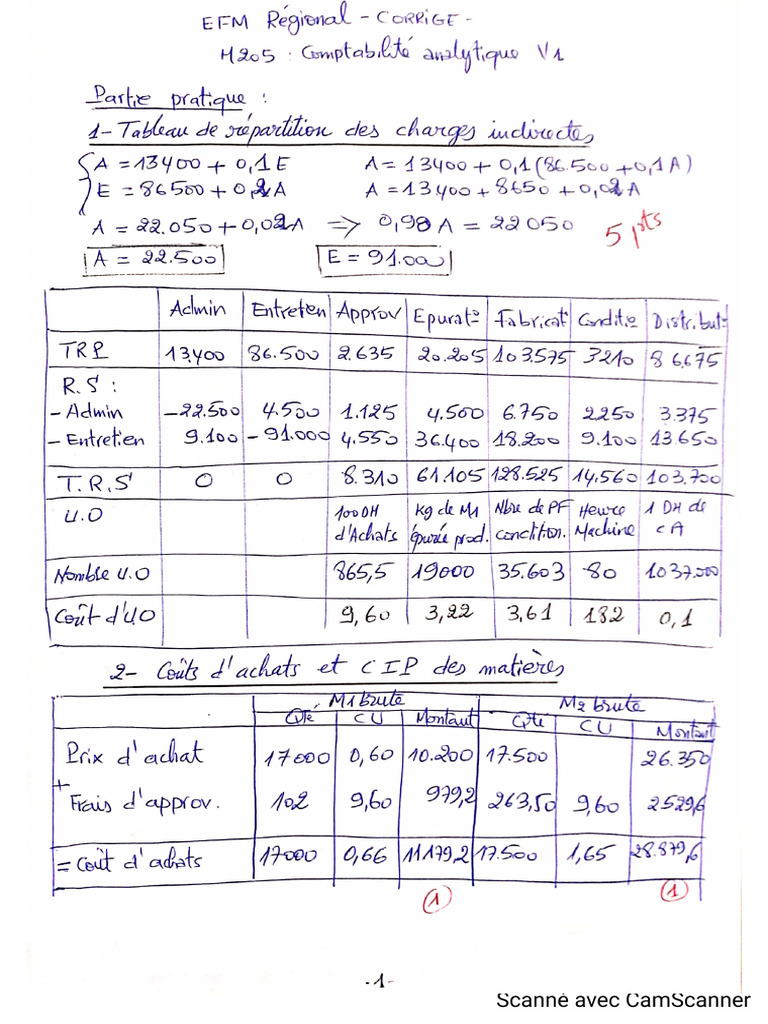 EFM Régional - CORRIGE -
M205 : Comptabilité analytique V1
Partie pratique :
1- Tableau de répartition des charges indirectes
A = 13400 + 0,1 E A = 13400 + 0,1 (86.500 + 0,1A)
E = 86500 + 0,2A A = 13400 + 8650 + 0,02A
A = 22.050 + 0,02A => 0,98 A = 22050 5 pts
A = 22.500 E = 91.000
Admin Entretien Approv Epurat° Fabricat° Conditio Distribut°
TRP 13.400 86.500 2.635 20.205 103.575 3210 86.675
R.S :
- Admin -22.500 4.500 1.125 4.500 6.750 2250 3.375
- Entretien 9.100 -91.000 4.550 36.400 18.200 9.100 13.650
T.R.S 0 0 8.310 61.105 128.525 14.560 103.700
U.O 100DH d'Achats Kg de M1 épurée prod. Nbre de PF condition. Heure Machine 1 DH de CA
Nombre U.O 865,5 19000 35.603 80 1037.000
Coût d'UO 9,60 3,22 3,61 182 0,1
2- Coûts d'achats et CIP des matières
M1 brute M2 brute
Qté CU Montant Qté CU Montant
Prix d'achat 17000 0,60 10.200 17.500 26.350
+ Frais d'approv. 102 9,60 979,2 263,50 9,60 2529,6
= Coût d'achats 17000 0,66 11179,2 17.500 1,65 28.879,6
1 1
-1-
Scanné avec CamScanner